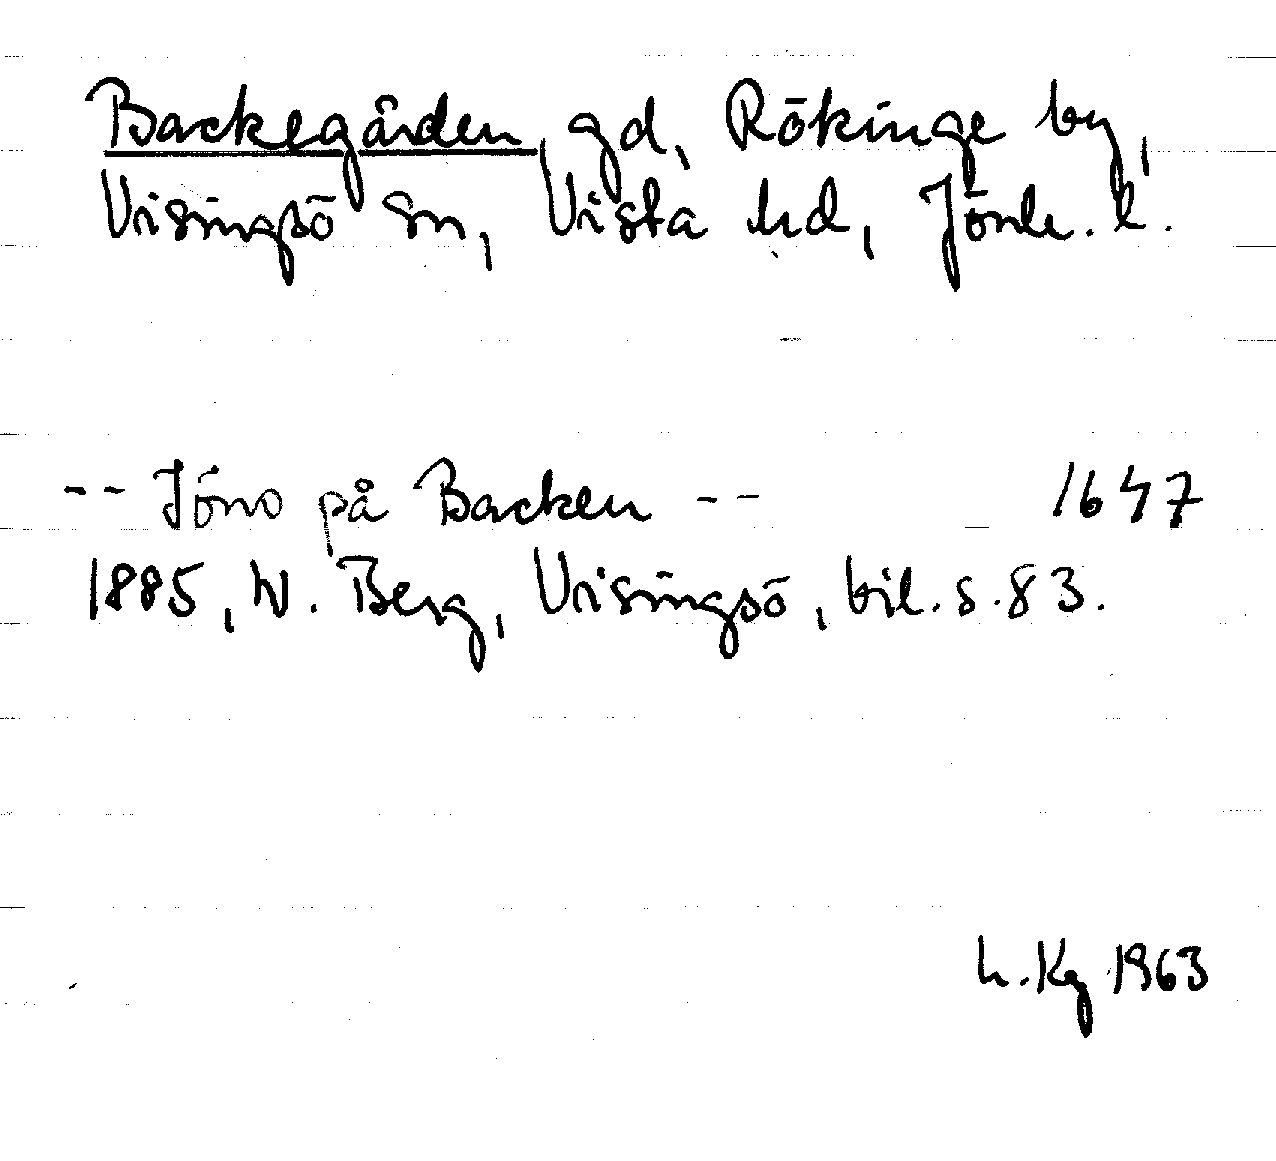 Backegården, gd, Rökinge by,
Visingsö sn, Vista hd, Jönk. l.
-- Jöns på Backen -- 1647
1885, W. Berg, Visingsö, bil. s. 83.
h. Kg 1963